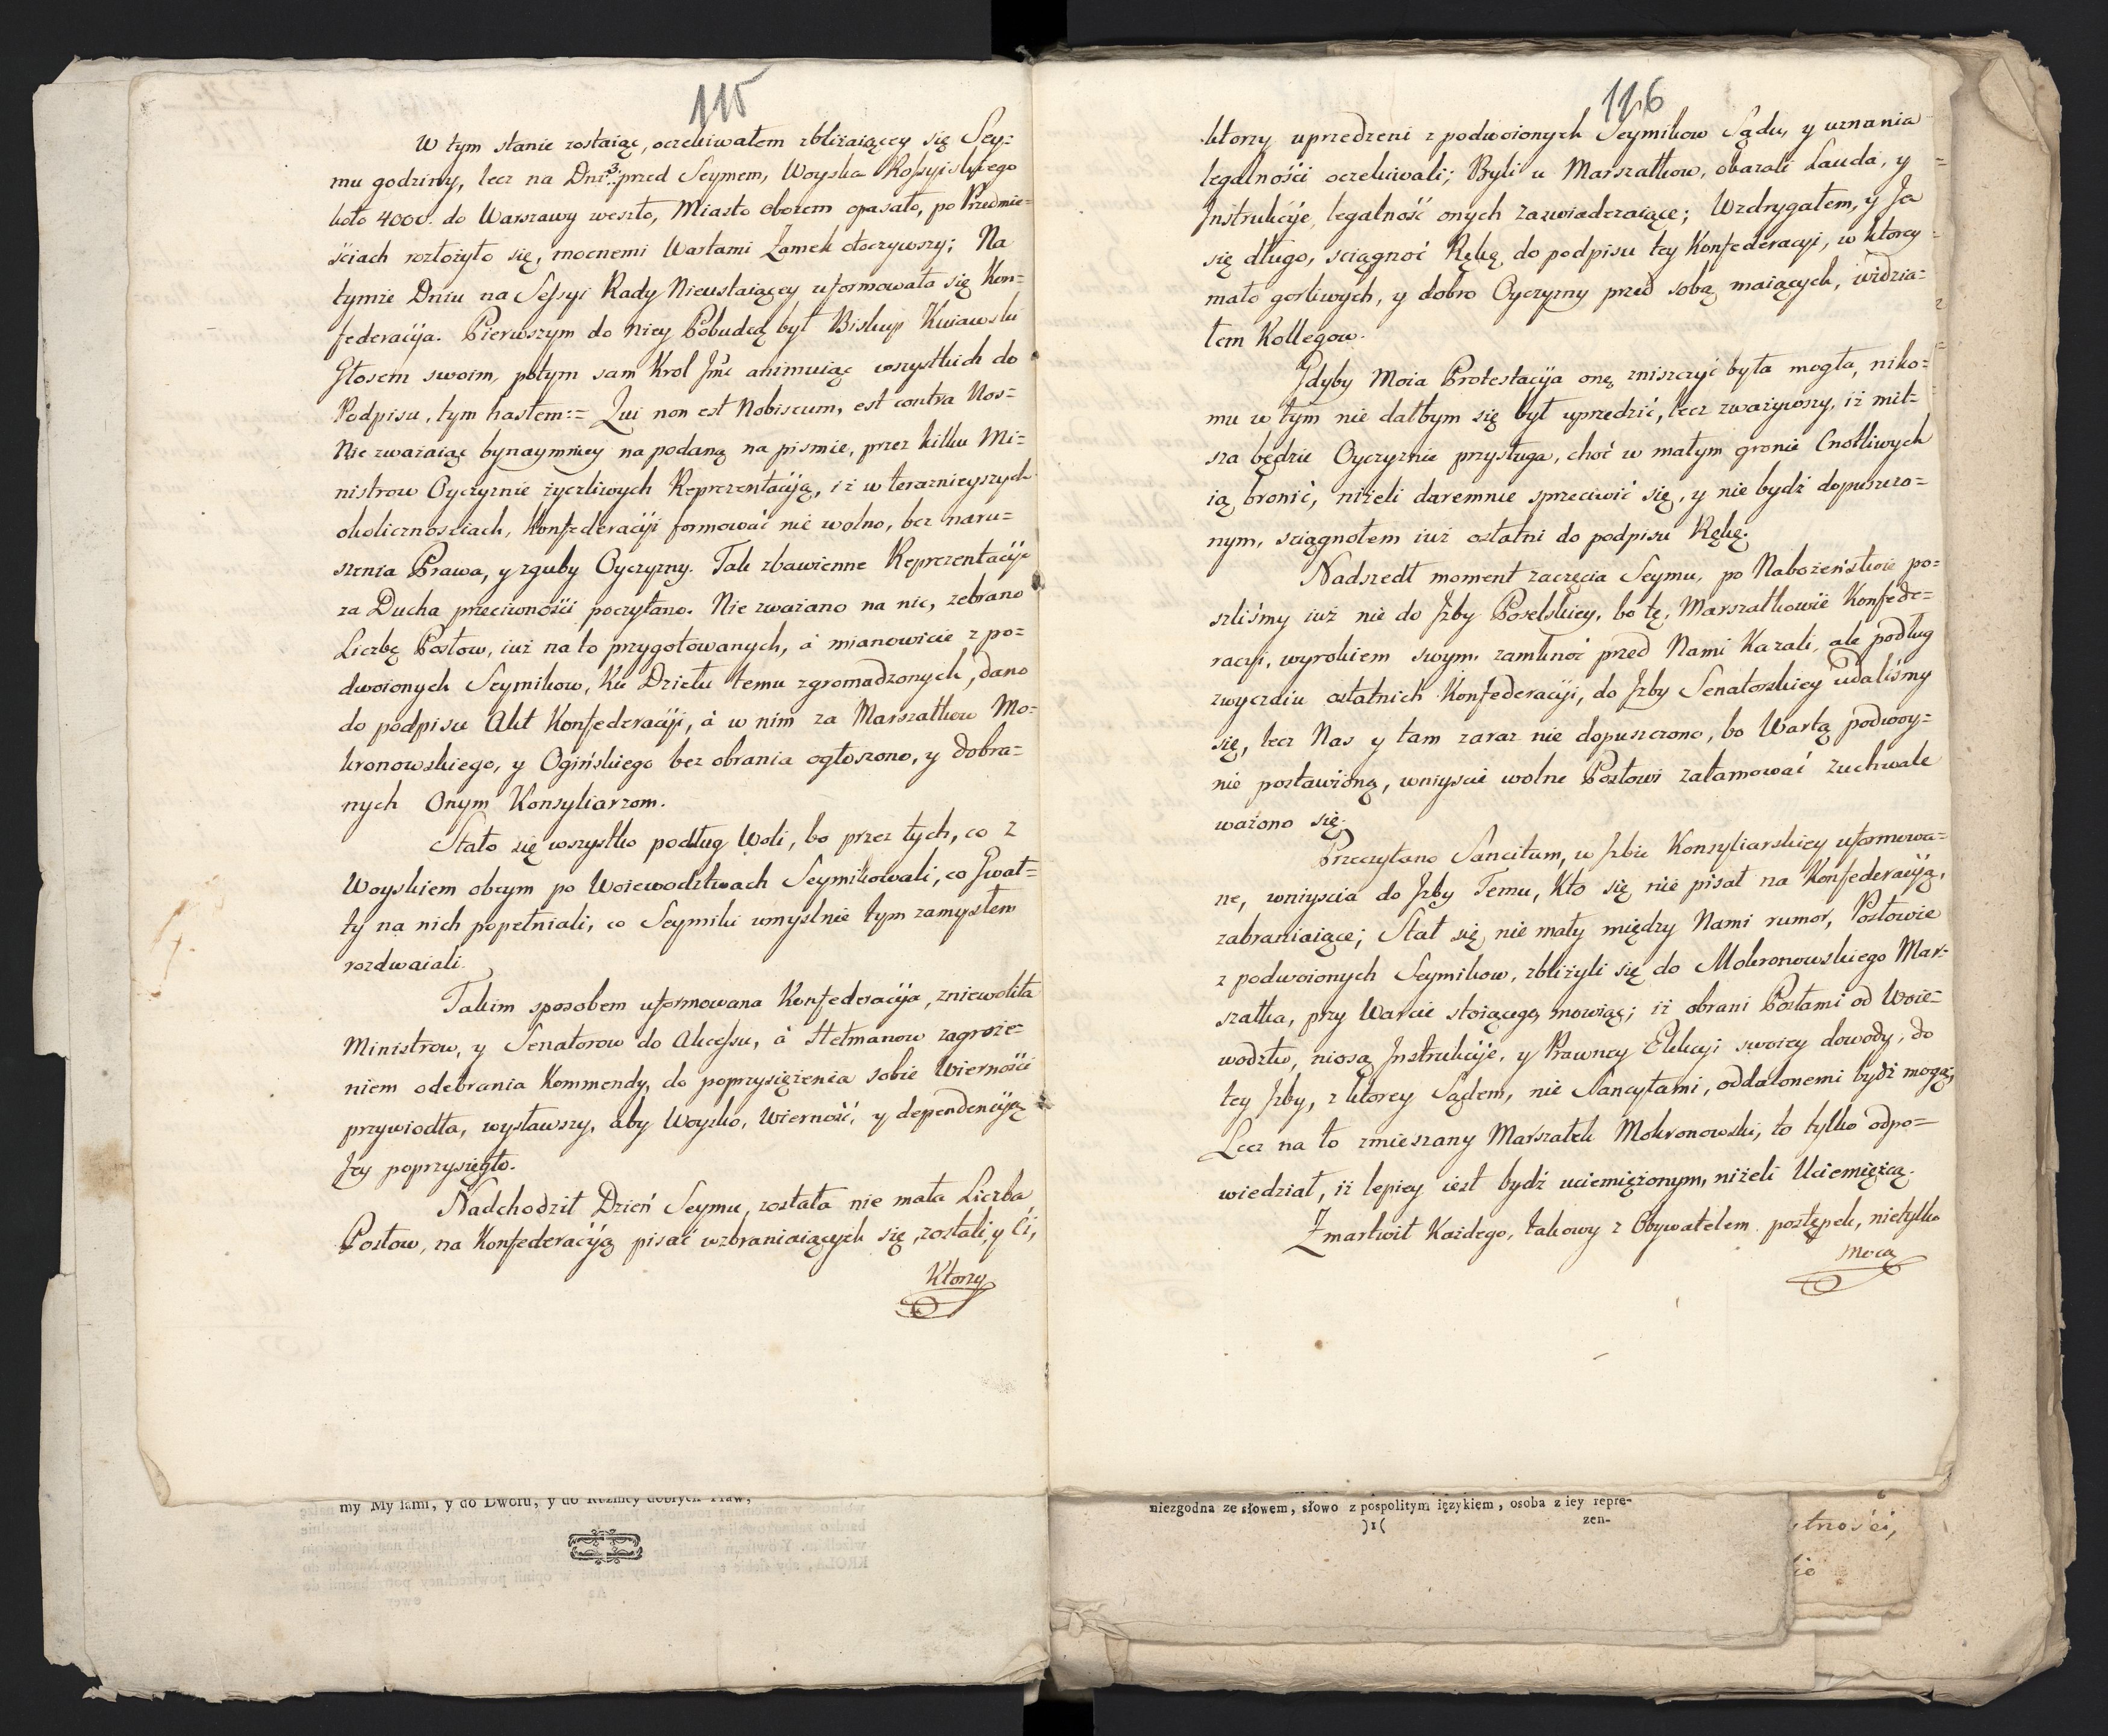 115
W tym stanie zostaiąc, oczekiwałem zbliżaiącey się Sey=
mu godziny, lecz na Dni 3. przed Seymem, Woyska Rossyiskiego
koło 4000. do Warszawy weszło, Miasto obozem opasało, po Przedmie=
ściach rozłożyło się, mocnemi Wartami Zamek otoczywszy; Na
tymże Dniu na Sessyi Rady Nieustaiącey uformowała się Kon=
federacyja. Pierwszym do niey Pobudką był Biskup Kuiawski
Głosem swoim, potym sam Krol Jmć animuiąc wszystkich do
Podpisu, tym hasłem:= Qui non est Nobiscum, est contra Nos=
Nie zważaiąc bynaymniey na podaną na pismie, przez kilku Mi=
nistrow Oyczyznie życzliwych Reprezentacyją, iż w teraznieyszych
okolicznościach, Konfederacyi formować nie wolno, bez naru=
szenia Prawa, y zguby Oyczyzny. Tak zbawienne Reprezentacyje
za Ducha przeciwności poczytano. Nie zważano na nic, zebrano
Liczbę Posłow, iuż na to przygotowanych, à mianowicie z po=
dwoionych Seymikow, Ku Dziełu temu zgromadzonych, dano
do podpisu Akt Konfederacyi, à w nim za Marszałkow Mo=
kronowskiego, y Ogińskiego bez obrania ogłoszono, y dobra=
nych Onym Konsyliarzom.
Stało się wszystko podług Woli, bo przez tych, co z
Woyskiem obcym po Woiewodztwach Seymikowali, co Gwał=
ty na nich popełniali, co Seymiki umyslnie tym zamysłem
rozdwaiali.
Takim sposobem uformowana Konfederacyja, zniewoliła
Ministrow, y Senatorow do Akcessu, à Hetmanow zagroże=
niem odebrania Kommendy, do poprzysiężenia sobie Wierności
przywiodła, wysławszy, aby Woysko, Wierność, y dependencyją
Jey poprzysięgło.
Nadchodził Dzień Seymu, została nie mała Liczba
Posłow, na Konfederacyją pisać wzbraniaiących się, zostali, y Ci,
Ktorzy
my My sami, y do Dworu, y do Rożnicy dobrych Praw,
116
ktorzy uprzedzeni z podwoionych Seymikow Sądu, y uznania
legalności oczekiwali; Byli u Marszałkow, okazali Lauda, y
Instrukcyje, legalność onych zaswiadczaiące; Wzdrygałem, y Ja
się długo, sciągnoć Rękę do podpisu tey Konfederacyi, w ktorey
mało gorliwych, y dobro Oyczyzny przed sobą maiących, widzia=
łem Kollegow.
Gdyby Moia Protestacyja onę zniszczyć była mogła, niko=
mu w tym nie dałbym się był uprzedzić, lecz zważywszy, iż mil=
sza będzie Oyczyznie przysługa, choć w małym gronie Cnotliwych
ią bronić, niżeli daremnie sprzeciwić się, y nie bydź dopuszczo=
nym, sciągnołem iuż ostatni do podpisu Rękę.
Nadszedł moment zaczęcia Seymu, po Nabożeństwie po=
szliśmy iuż nie do Izby Poselskiey, bo tę, Marszałkowie Konfede=
racyi, wyrokiem swym, zamknoć przed Nami Kazali, ale podług
zwyczaiu ostatnich Konfederacyi, do Izby Senatorskiey udaliśmy
się, lecz Nas y tam zaraz nie dopuszczono, bo Wartą podwoy=
nie postawioną, wniyscie wolne Posłowi zatamować zuchwale
ważono się.
Przeczytano Sancitum, w Izbie Konsyliarskiey uformowa=
ne, wniyscia do Izby Temu, Kto się nie pisał na Konfederacyją,
zabraniaiące; Stał się nie mały między Nami rumor, Posłowie
z podwoionych Seymikow, zbliżyli się do Mokronowskiego Mar=
szałka, przy Warcie stoiącego, mowiąc; iż obrani Posłami od Woie=
wodztw, niosą Instrukcyje, y Prawney Elekcyi swoiey dowody, do
tey Izby, z ktorey Sądem, nie Sancytami, oddalonemi bydź mogą;
Lecz na to zmieszany Marszałek Mokronowski, to tylko odpo=
wiedział, iż lepiey iest bydź uciemiężonym, niżeli Uciemiężcą.
Zmartwił Każdego, takowy z Obywatelem postępek, nietylko
Mocą
niezgodna ze słowem, słowo z pospolitym ięzykiem, osoba z iey repre-
)1( zen-